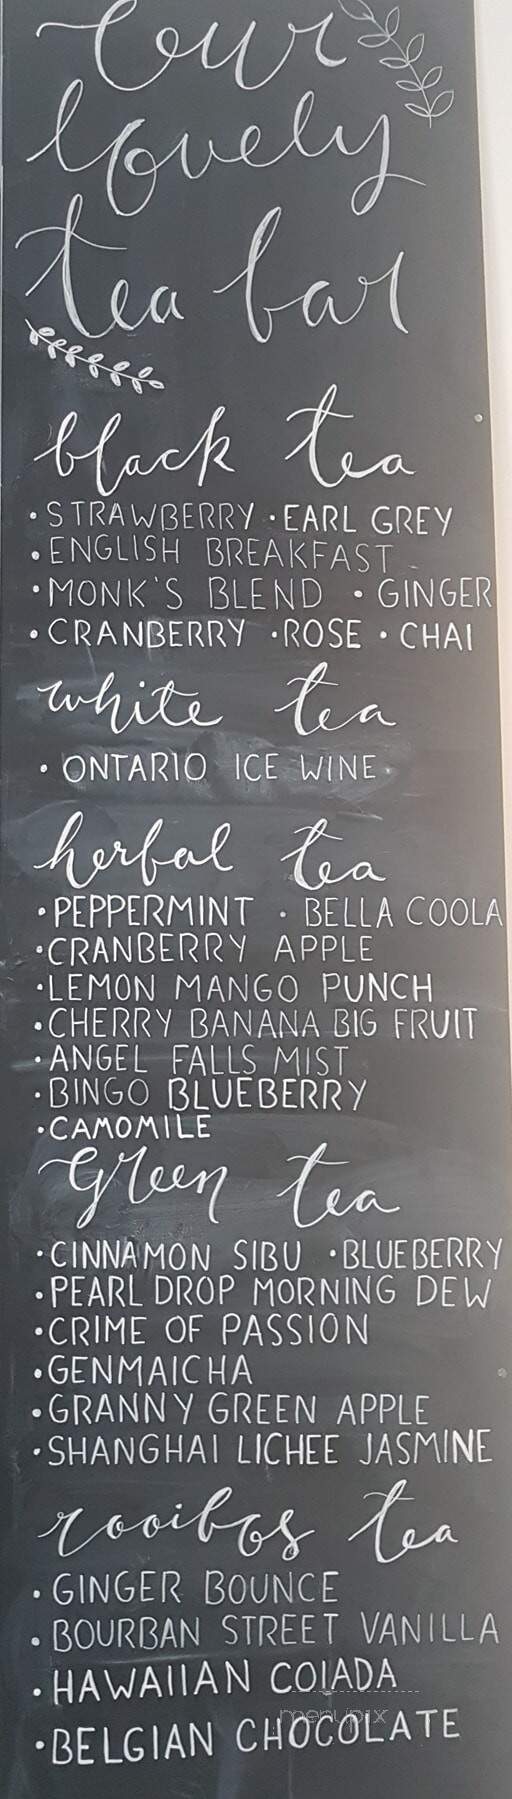 Our
lovely
tea bar
black tea
• STRAWBERRY • EARL GREY
• ENGLISH BREAKFAST
• MONK'S BLEND • GINGER
• CRANBERRY • ROSE • CHAI
white tea
• ONTARIO ICE WINE
herbal tea
• PEPPERMINT • BELLA COOLA
• CRANBERRY APPLE
• LEMON MANGO PUNCH
• CHERRY BANANA BIG FRUIT
• ANGEL FALLS MIST
• BINGO BLUEBERRY
• CAMOMILE
green tea
• CINNAMON SIBU • BLUEBERRY
• PEARL DROP MORNING DEW
• CRIME OF PASSION
• GENMAICHA
• GRANNY GREEN APPLE
• SHANGHAI LICHEE JASMINE
rooibos tea
• GINGER BOUNCE
• BOURBAN STREET VANILLA
• HAWAIIAN COlADA
menupix
• BELGIAN CHOCOLATE